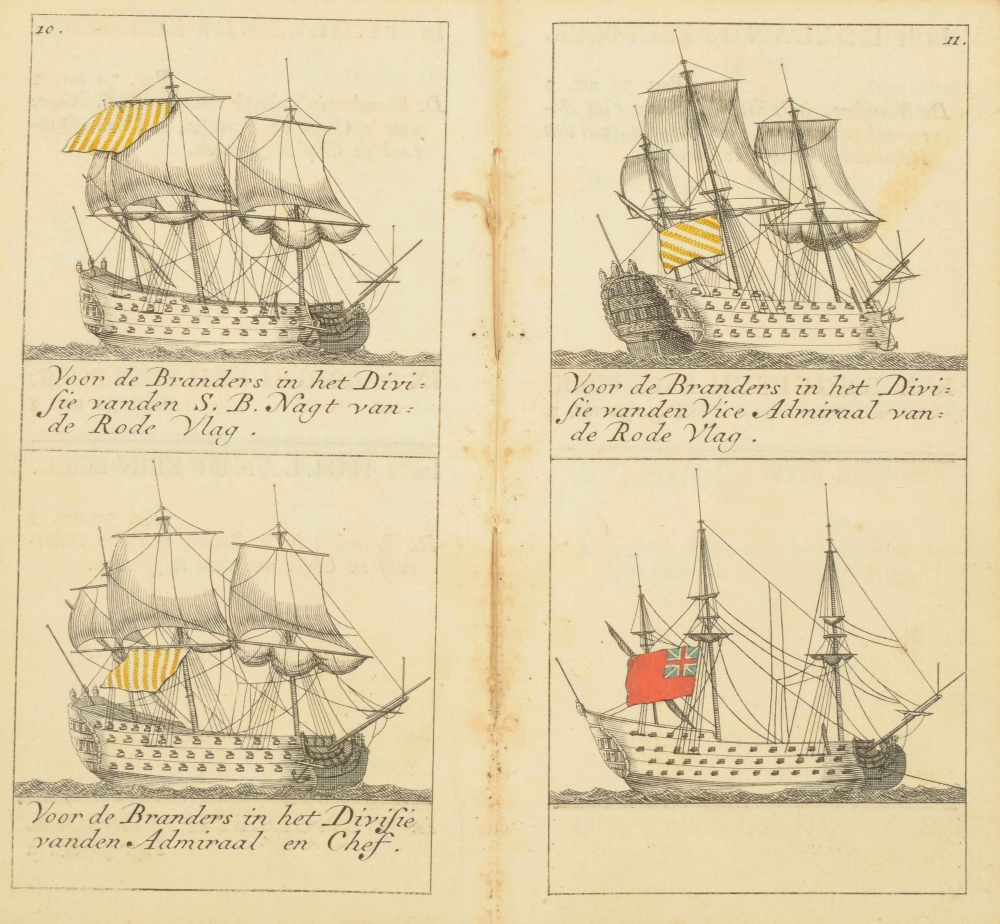 10.
Voor de Branders in het Divi=
ſie vanden S. B. Nagt van=
de Rode Vlag.
Voor de Branders in het Diviſie
vanden Admiraal en Chef.
11.
Voor de Branders in het Divi=
ſie vanden Vice Admiraal van=
de Rode Vlag.